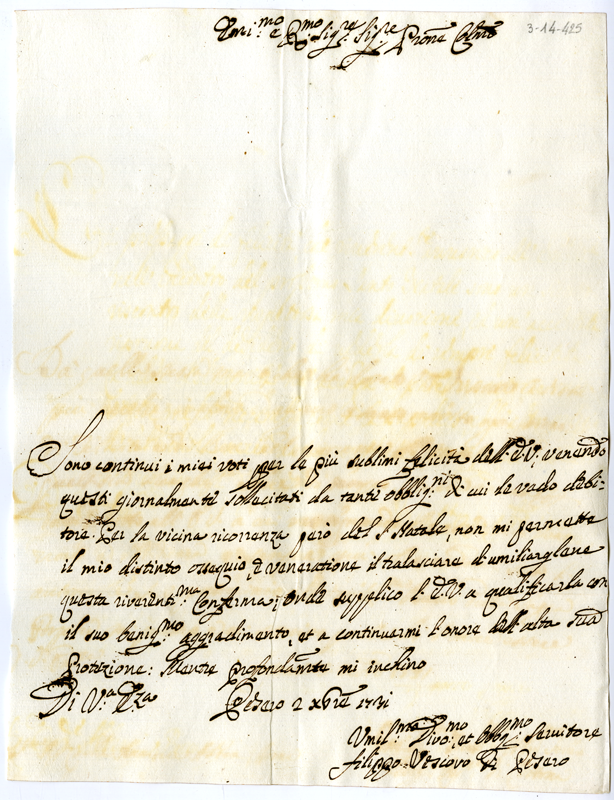 Emi.mo e R.mo Sig.re Sig.re Prōne Colmo
3-14-425
Sono continui i miei voti per le più sublimi felicità dell'E.V. venendo
questi giornalmente sollecitati da tante obblig.ni di cui le vado debi-
tore. Per la vicina ricorrenza però del S. Natale, non mi permette
il mio distinto ossequio, e veneratione il tralasciare di umiliargliene
questa riverent.ma conferma; onde supplico l'E.V. a qualificarla con
il suo benig.mo aggradimento, et a continuarmi l'onore dell'alta sua
Protezione: Mentre profondamte mi inchino
Di V.a E.za Pesaro 2 xbre 1731
Umil.mo Divo.mo et Obbg.mo Servitore
Filippo Vescovo di Pesaro